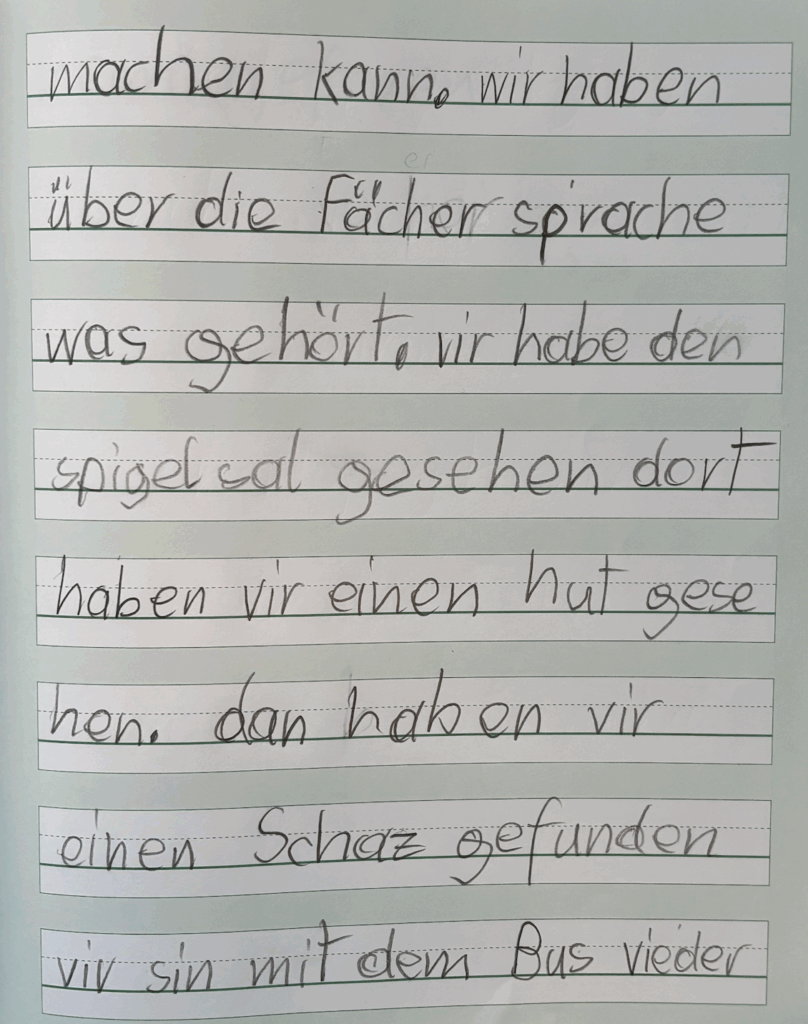 machen kann. wir haben
über die Fächer sprache
was gehört. vir habe den
spigel sal gesehen dort
haben vir einen hut gese
hen. dan haben vir
einen Schaz gefunden
vir sin mit dem Bus vieder